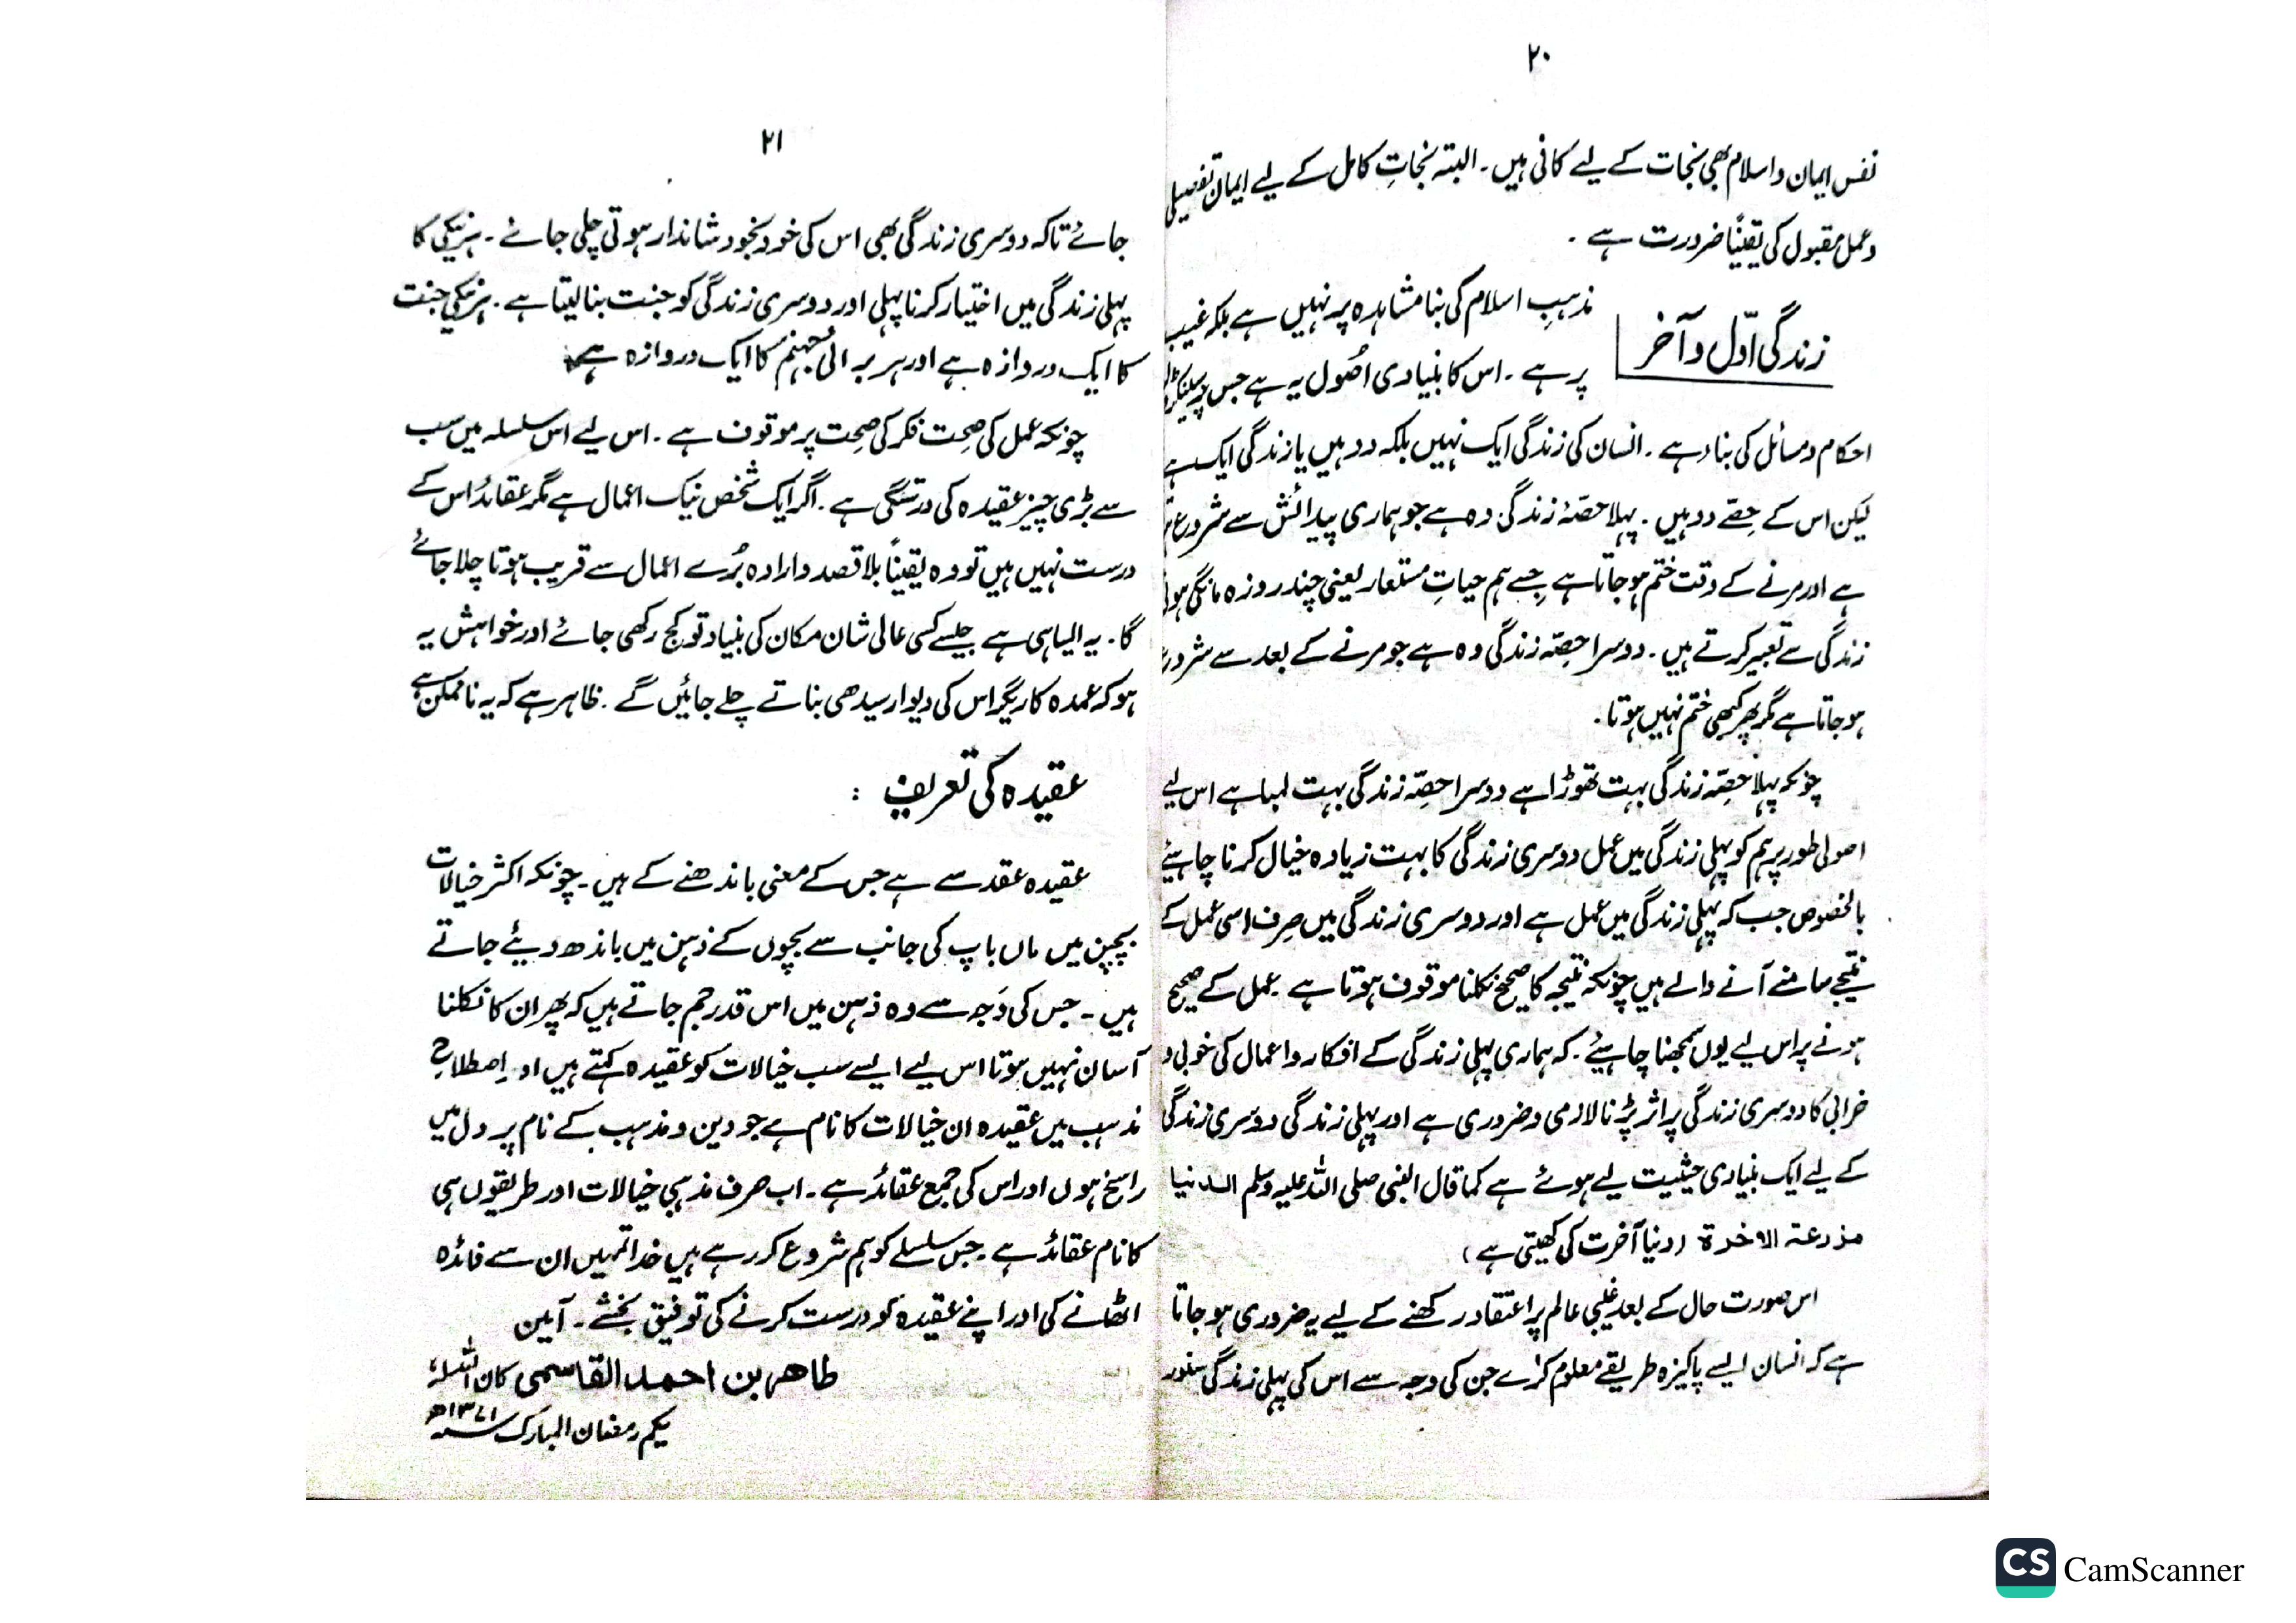 ۲۰
نفس ایمان و اسلام بھی نجات کے لیے کافی ہیں۔ البتہ نجاتِ کامل کے لیے ایمان تفصیلی
و عمل مقبول کی یقیناً ضرورت ہے۔
زندگی اوّل و آخر
مذہبِ اسلام کی بنا مشاہدہ پر نہیں ہے بلکہ غیب
پر ہے۔ اس کا بنیادی اُصُول یہ ہے جس پر
احکام و مسائل کی بناد ہے۔ انسان کی زندگی ایک نہیں بلکہ دو ہیں یا زندگی ایک ہے
لیکن اس کے حِصّے دو ہیں۔ پہلا حصّۂ زندگی وہ ہے جو ہماری پیدائش سے شروع
ہے اور مرنے کے وقت ختم ہو جاتا ہے جِسے ہم حیاتِ مستعار یعنی چند روزہ مانگی ہوئی
زندگی سے تعبیر کرتے ہیں۔ دوسرا حِصّہ زندگی وہ ہے جو مرنے کے بعد سے شروع
ہو جاتا ہے مگر پھر کبھی ختم نہیں ہوتا۔
چونکہ پہلا حِصّہ زندگی بہت تھوڑا ہے دوسرا حِصّہ زندگی بہت لمبا ہے اس لیے
اصولی طور پر ہم کو پہلی زندگی میں عمل دوسری زندگی کا بہت زیادہ خیال کرنا چاہیئے
بالخصوص جب کہ پہلی زندگی میں عمل ہے اور دوسری زندگی میں صِرف اسی عمل کے
نتیجے سامنے آنے والے ہیں چونکہ نتیجہ کا صحیح نکلنا موقوف ہوتا ہے۔ عمل کے صحیح
ہونے پر اس لیے یوں سمجھنا چاہیئے۔ کہ ہماری پہلی زندگی کے افکار و اعمال کی خوبی و
خرابی کا دوسری زندگی پر اثر پڑنا لازمی و ضروری ہے اور پہلی زندگی دوسری زندگی
کے لیے ایک بنیادی حیثیت لیے ہوئے ہے کما قال النبی صلی اللہ علیہ وسلم الدنیا
مزرعۃ الاٰخرۃ (دنیا آخرت کی کھیتی ہے)
اس صورت حال کے بعد غیبی عالم پر اعتقاد رکھنے کے لیے یہ ضروری ہو جاتا
ہے کہ انسان ایسے پاکیزہ طریقے معلوم کرے جن کی وجہ سے اس کی پہلی زندگی سنور
۲۱
جائے تاکہ دوسری زندگی بھی اس کی خود بخود شاندار ہوتی چلی جائے۔ ہر نیکی کا
پہلی زندگی میں اختیار کرنا پہلی اور دوسری زندگی کو جنت بنا لیتا ہے۔ ہر نیکی جنت
کا ایک دروازہ ہے اور ہر برائی جہنم کا ایک دروازہ ہے
چونکہ عمل کی صِحت فکر کی صِحت پر موقوف ہے۔ اس لیے اس سلسلہ میں سب
سے بڑی چیز عقیدہ کی درستگی ہے۔ اگر ایک شخص نیک اعمال ہے مگر عقائد اس کے
درست نہیں ہیں تو وہ یقیناً بلا قصد و ارادہ بُرے اعمال سے قریب ہوتا چلا جائے
گا۔ یہ ایسا ہی ہے جیسے کسی عالی شان مکان کی بنیاد تو کج رکھی جائے اور خواہش یہ
ہو کہ عمدہ کاریگر اس کی دیوار سیدھی بناتے چلے جائیں گے۔ ظاہر ہے کہ یہ ناممکن ہے
عقیدہ کی تعریف :
عقیدہ عقد سے ہے جس کے معنی باندھنے کے ہیں۔ چونکہ اکثر خیالات
بچپن میں ماں باپ کی جانب سے بچوں کے ذہن میں باندھ دیئے جاتے
ہیں۔ جس کی وَجہ سے وہ ذہن میں اس قدر جم جاتے ہیں کہ پھر ان کا نکلنا
آسان نہیں ہوتا اس لیے ایسے سب خیالات کو عقیدہ کہتے ہیں اور اِصطلاحِ
مذہب میں عقیدہ ان خیالات کا نام ہے جو دین و مذہب کے نام پر دل میں
راسخ ہوں اور اس کی جمع عقائد ہے۔ اب صرف مذہبی خیالات اور طریقوں ہی
کا نام عقائد ہے۔ جس سلسلے کو ہم شروع کر رہے ہیں خدا تمہیں ان سے فائدہ
اٹھانے کی اور اپنے عقیدہ کو درست کرنے کی توفیق بخشے۔ آمین
طاهر بن احمد القاسمی کان اللہ لہٗ
یکم رمضان المبارک سنہ ۱۳۷۱ھ
CS CamScanner